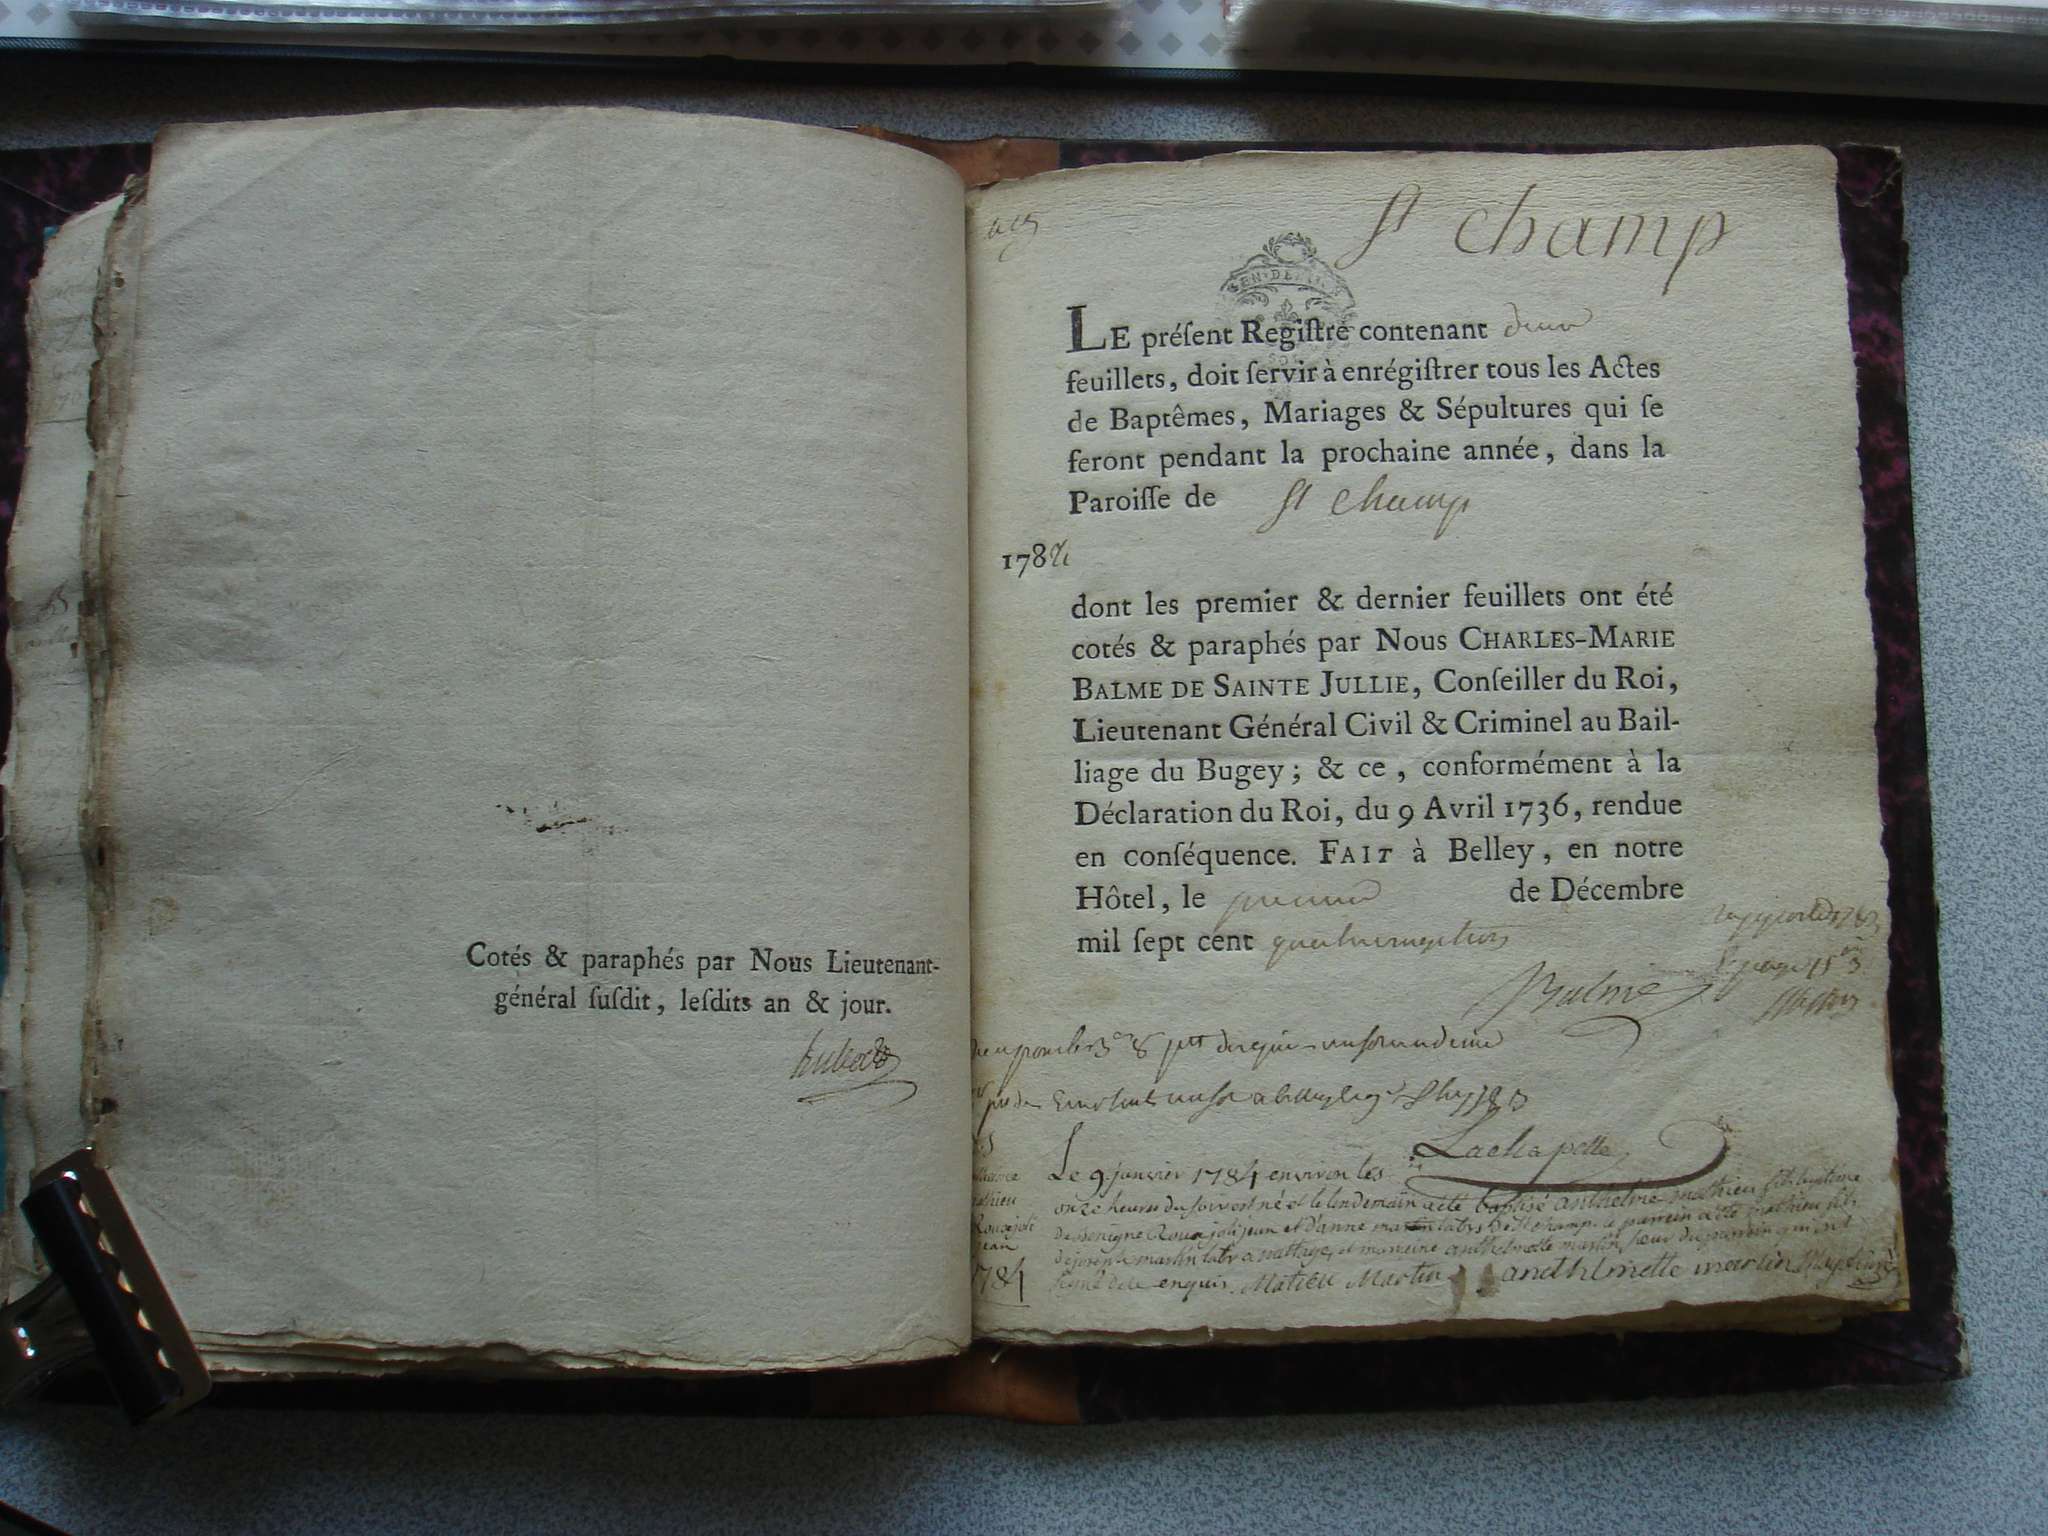 Cotés & paraphés par Nous Lieutenant-
général ſuſdit, leſdits an & jour.
St champ
GEN. DE
LE préſent Regiſtre contenant deux
feuillets, doit ſervir à enrégiſtrer tous les Actes
de Baptêmes, Mariages & Sépultures qui ſe
feront pendant la prochaine année, dans la
Paroiſſe de St champ
1784
dont les premier & dernier feuillets ont été
cotés & paraphés par Nous CHARLES-MARIE
BALME DE SAINTE JULLIE, Conſeiller du Roi,
Lieutenant Général Civil & Criminel au Bail-
liage du Bugey; & ce, conformément à la
Déclaration du Roi, du 9 Avril 1736, rendue
en conſéquence. FAIT à Belley, en notre
Hôtel, le premier de Décembre
mil ſept cent quatrevingt trois
Balme
Lachapelle
Le 9 janvier 1784 environ les
onze heures du soir est né et le lendemain a été baptisé anthelme mathieu fils légitime
de benigne Rougejolijean et d'anne martin labrs de St champ. le parrein a été mathieu fils
de joseph martin labr a nattage, et marreine anthelmette martin sœur du parrein qui ont
signé de ce enquis. Matieu Martin andhlmette martin
Rougejoli
jean
1784